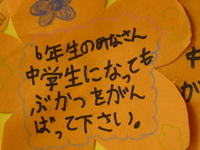 6年生のみなさん
中学生になっても
ぶかつをがん
ばって下さい。